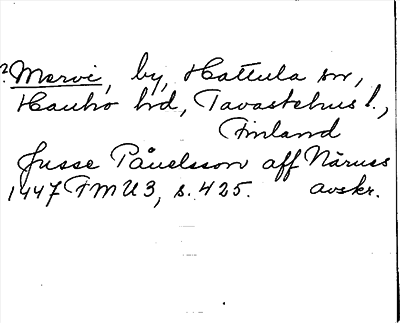 ? Mervi, by, Hattula sn,
Hauho hd, Tavastehus l.,
Finland
Jusse Påuelsson aff Näruss
1447 FMU 3, s. 425. avskr.